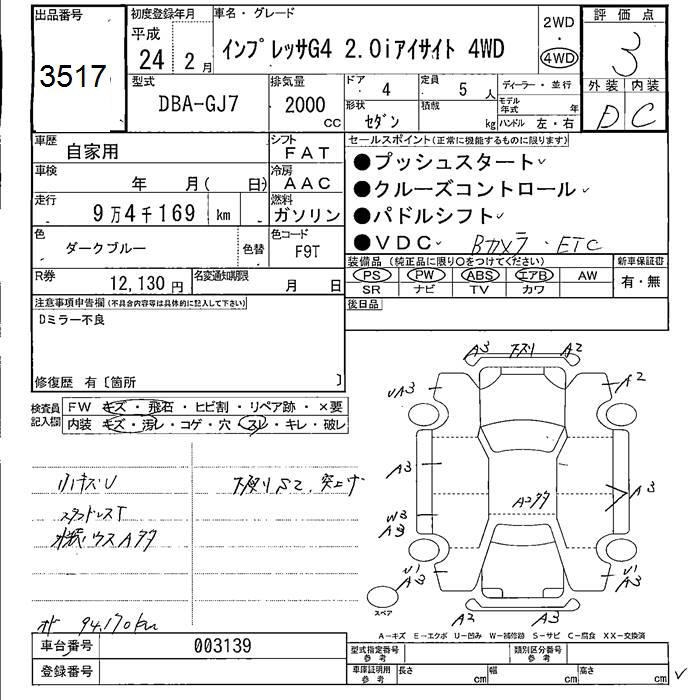 出品番号
3517
初度登録年月
平成
24 2月
車名・グレード
インプレッサG4 2.0iアイサイト 4WD
2WD
・
4WD
評価点
3
外装 内装
D C
型式
DBA-GJ7
排気量
2000
cc
ドア 4
形状 セダン
定員 5 人
積載 kg
ディーラー・並行
モデル年式 年
ハンドル 左・右
車歴
自家用
シフト
FAT
車検
年 月( 日)
冷房
AAC
走行
9万4千169 km
燃料
ガソリン
色
ダークブルー
色替
色コード
F9T
R券
12,130円
名変通知期限
月 日
セールスポイント(正常に機能するものに限ります)
●プッシュスタート✓
●クルーズコントロール✓
●パドルシフト✓
●VDC✓ Bカメラ・ETC
装備品(純正品に限り○をつけてください)
PS PW ABS エアB AW
SR ナビ TV カワ
新車保証書
有・無
後日品
注意事項申告欄(不具合内容等は具体的に記入して下さい)
Dミラー不良
修復歴 有〔箇所 〕
検査員
記入欄
FW キズ・飛石・ヒビ割・リペア跡・×要
内装 キズ・汚レ・コゲ・穴・スレ・キレ・破レ
小キズU
下廻りサビ、突上ゲ
スタッドレスT
オド 94,170km
A3 下スリ A2
UA3
A2
A3
A3
W3
A3
Aタタ
U1
A3
U1
A3
A2 A3
スペア
A-キズ E-エクボ U-凹み W-補修跡 S-サビ C-腐食 XX-交換済
車台番号
003139
登録番号
型式指定番号
参考
類別区分番号
参考
車庫証明用
参考
長さ cm 幅 cm 高さ cm
✓